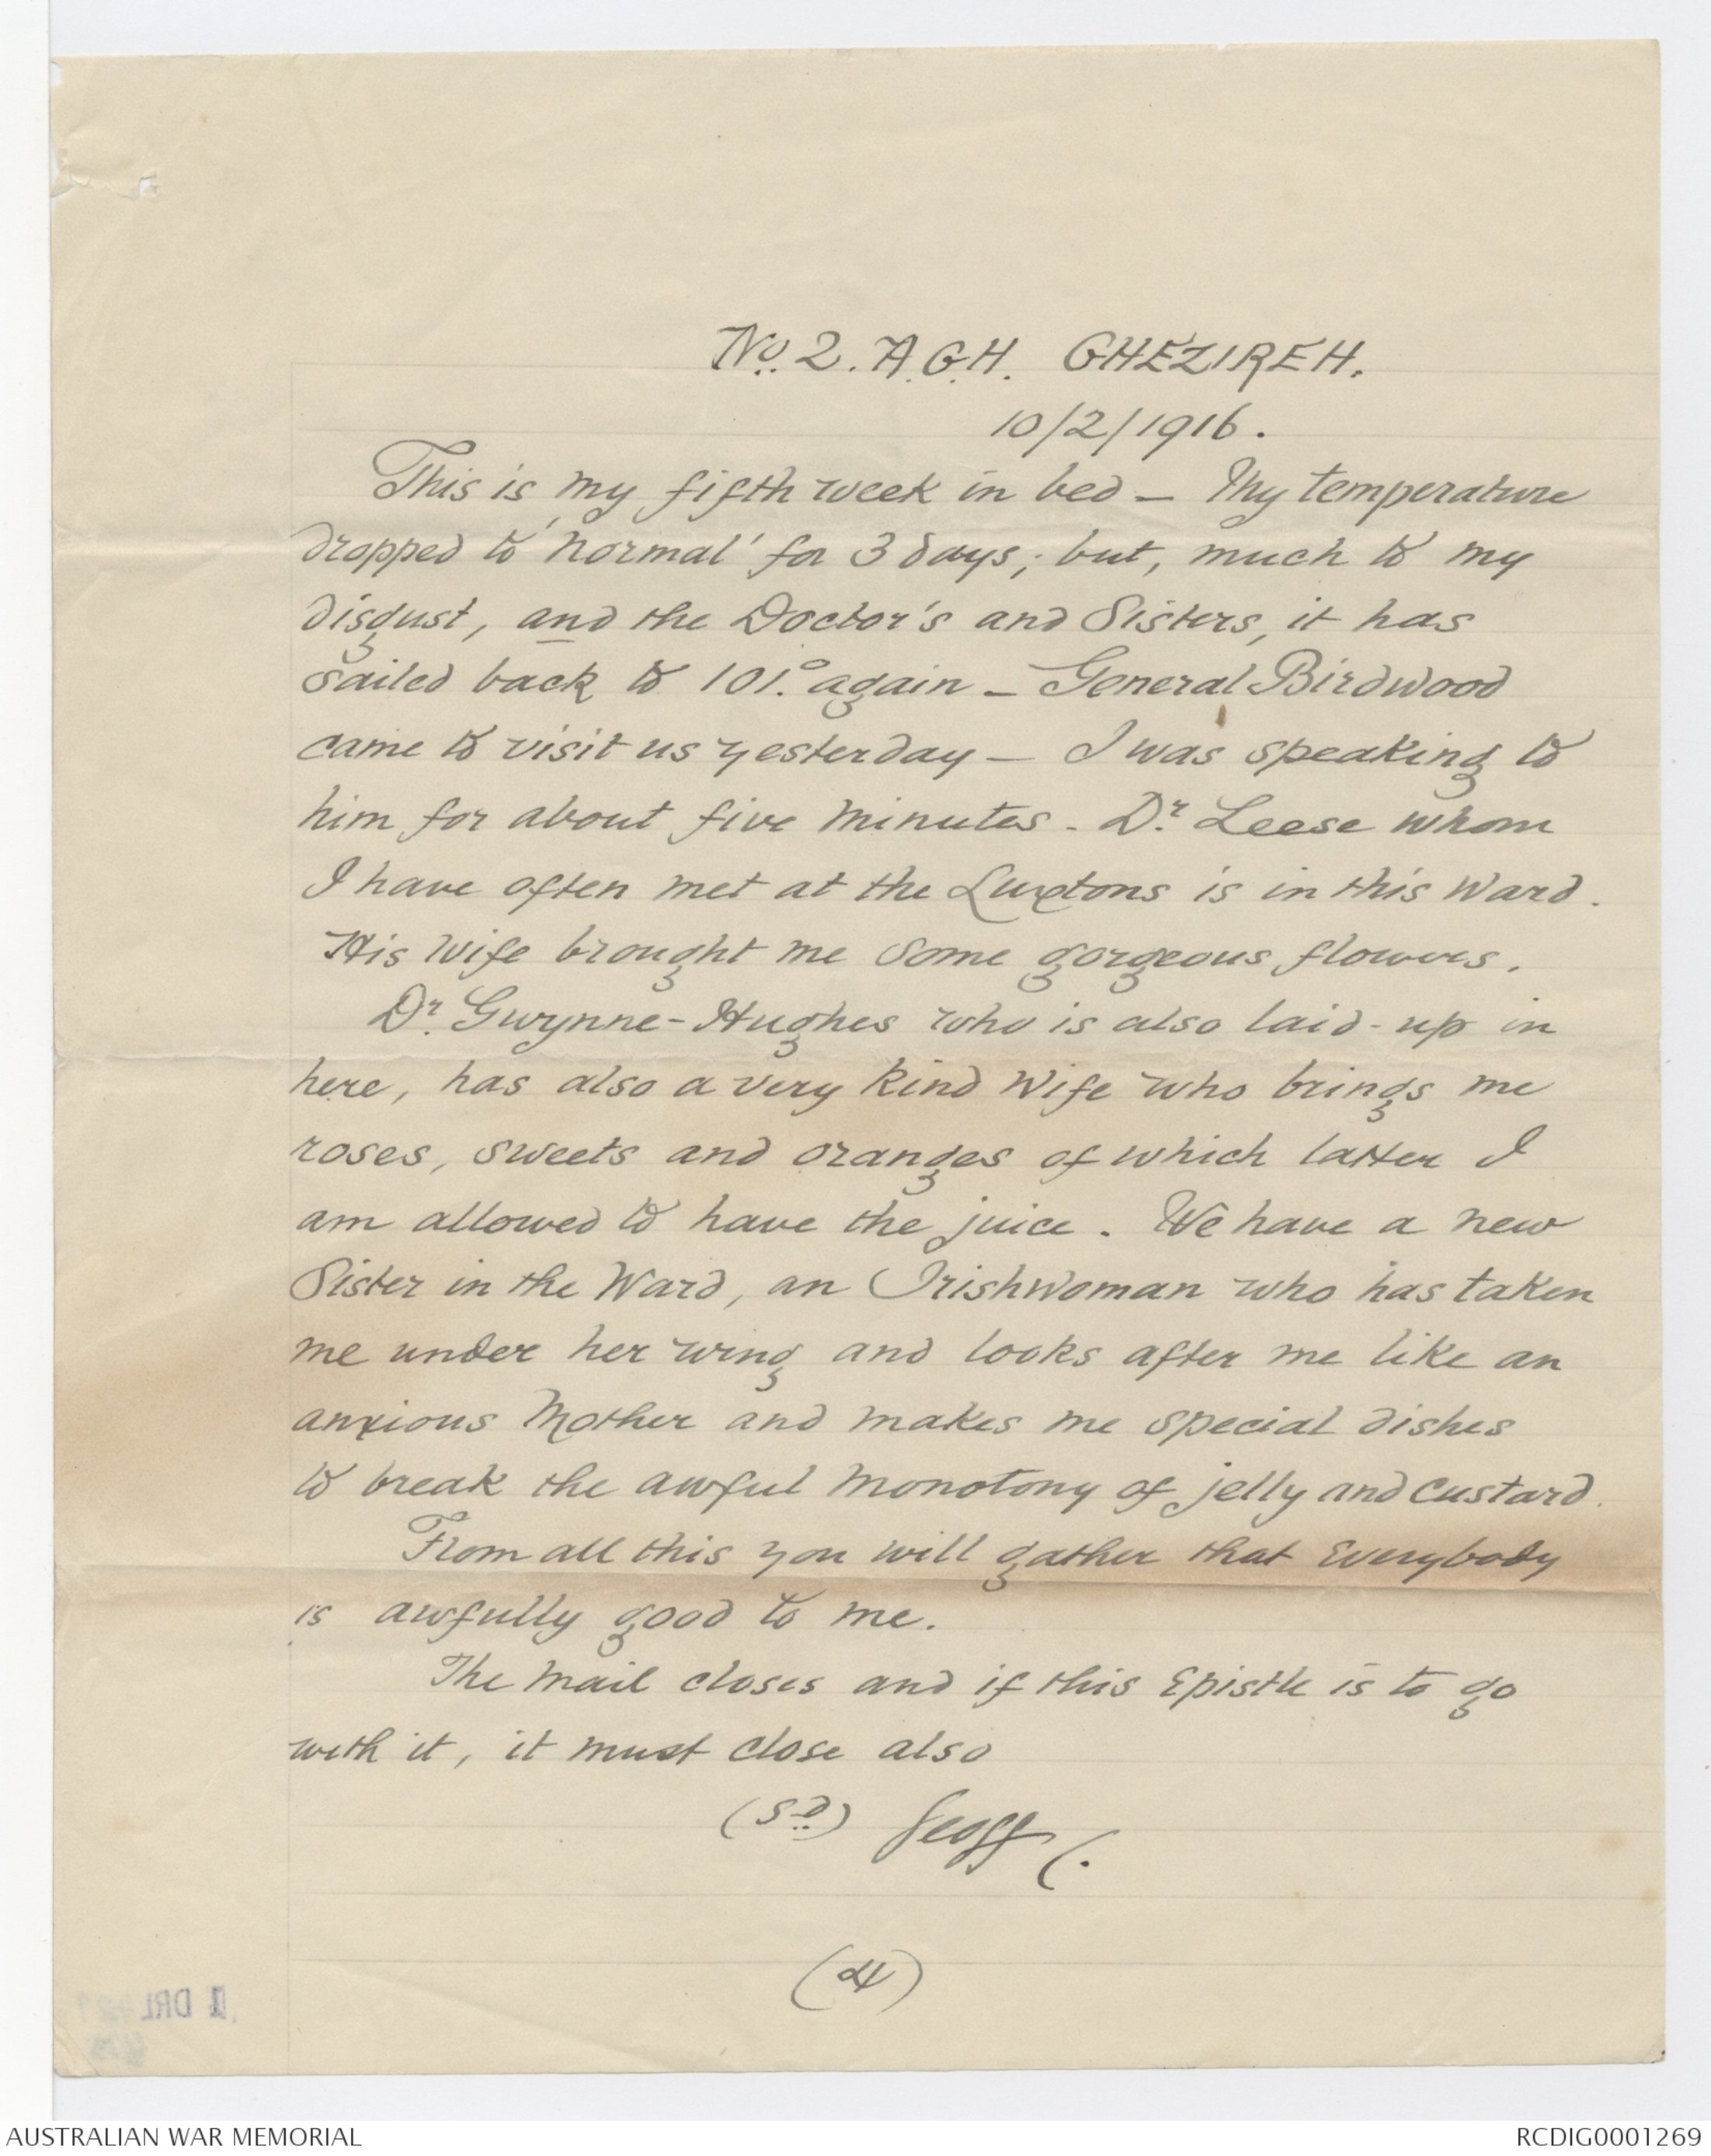 No. 2. A.G.H. GHEZIREH.
10/2/1916.
This is my fifth week in bed - My temperature
dropped to 'normal' for 3 days; but, much to my
disgust, and the Doctor's and Sisters, it has
sailed back to 101.° again - General Birdwood
came to visit us yesterday - I was speaking to
him for about five minutes. Dr. Leese whom
I have often met at the Luxtons is in this Ward.
His wife brought me some gorgeous flowers.
Dr. Gwynne-Hughes who is also laid-up in
here, has also a very kind Wife who brings me
roses, sweets and oranges of which latter I
am allowed to have the juice. We have a new
Sister in the Ward, an Irishwoman who has taken
me under her wing and looks after me like an
anxious Mother and makes me special dishes
to break the awful monotony of jelly and custard.
From all this you will gather that Everybody
is awfully good to me.
The mail closes and if this Epistle is to go
with it, it must close also
(Sd) Geoff (.
(4)
1 DRL
AUSTRALIAN WAR MEMORIAL
RCDIG0001269